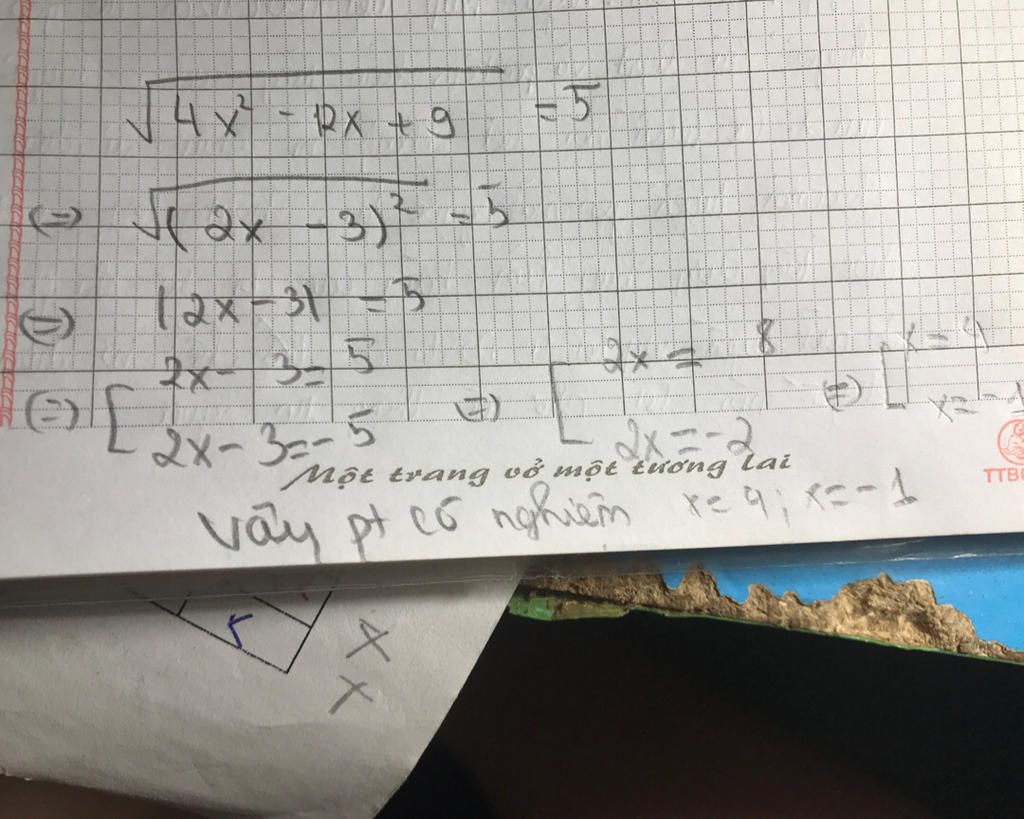 √(4x² - 12x + 9) = 5
(=) √((2x - 3)²) = 5
(=) |2x - 3| = 5
(=) [ 2x - 3 = 5 (=) [ 2x = 8 (=) [ x = 4
2x - 3 = -5 2x = -2 x = -1
Một trang vở một tương lai
TTB
Vậy pt có nghiệm x = 4; x = -1
5
X
X